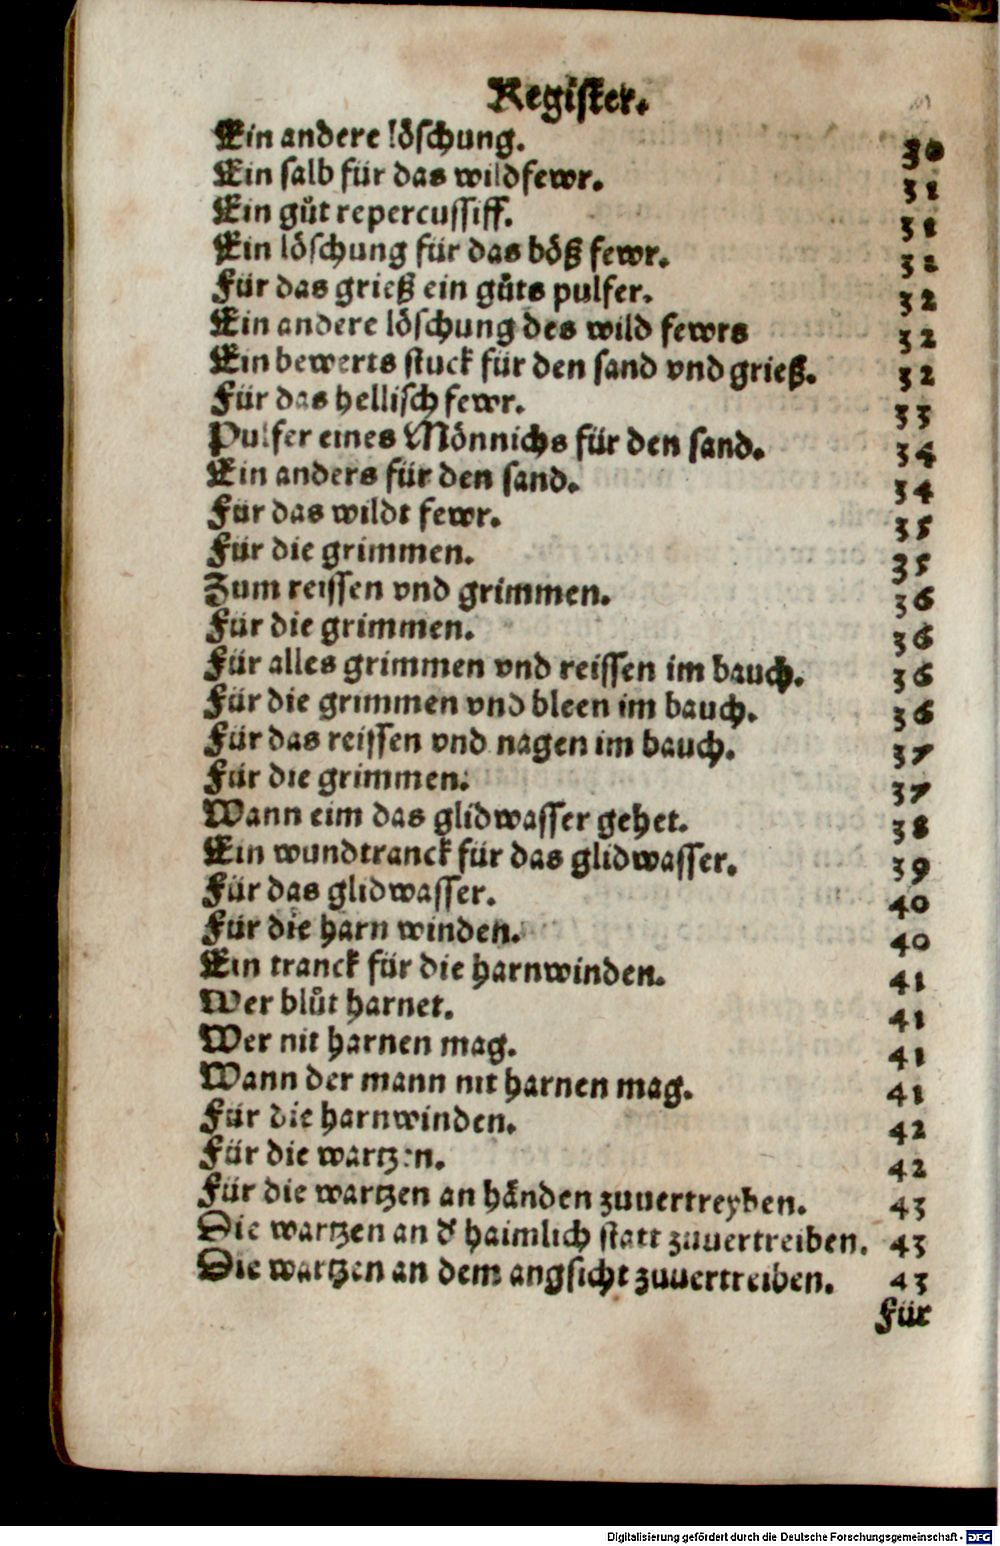 Register.
Ein andere löschung. 30
Ein salb für das wildfewr. 31
Ein gůt repercussiff. 31
Ein löschung für das böß fewr. 32
Für das grieß ein gůts pulfer. 32
Ein andere löschung des wild fewrs 32
Ein bewerts stuck für den sand vnd grieß. 32
Für das hellisch fewr. 33
Pulfer eines Mönnichs für den sand. 34
Ein anders für den sand. 34
Für das wildt fewr. 35
Für die grimmen. 35
Zum reissen vnd grimmen. 36
Für die grimmen. 36
Für alles grimmen vnd reissen im bauch. 36
Für die grimmen vnd bleen im bauch. 36
Für das reissen vnd nagen im bauch. 37
Für die grimmen. 37
Wann eim das glidwasser gehet. 38
Ein wundtranck für das glidwasser. 39
Für das glidwasser. 40
Für die harn winden. 40
Ein tranck für die harnwinden. 41
Wer blůt harnet. 41
Wer nit harnen mag. 41
Wann der mann nit harnen mag. 41
Für die harnwinden. 42
Für die wartzen. 42
Für die wartzen an hånden zuuertreyben. 43
Die wartzen an d' haimlich statt zuuertreiben. 43
Die wartzen an dem angsicht zuuertreiben. 43
Für
Digitalisierung gefördert durch die Deutsche Forschungsgemeinschaft - DFG